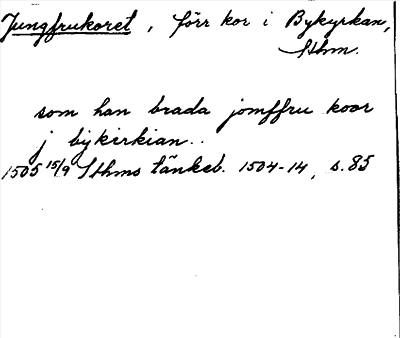 Jungfrukoret, förr kor i Bykyrkan,
Sthm.
som han brada jomffru koor
j bykirkian..
1505 15/9 Sthms tänkeb. 1504-14, s. 85